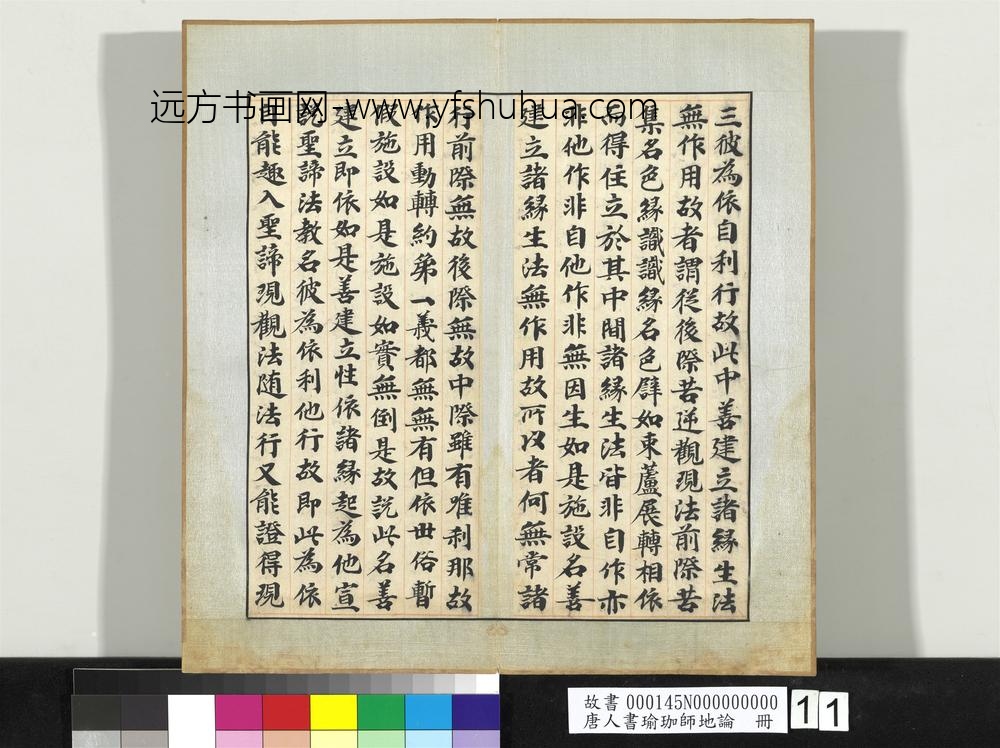 远方书画网-www.yfshuhua.com
三彼為依自利行故此中善建立諸緣生法
無作用故者謂從後際苦逆觀現法前際苦
集名色緣識識緣名色譬如束蘆展轉相依
而得住立於其中間諸緣生法皆非自作亦
非他作非自他作非無因生如是施設名善
建立諸緣生法無作用故所以者何無常諸
行前際無故後際無故中際雖有唯刹那故
作用動轉約第一義都無無有但依世俗暫
假施設如是施設如實無倒是故說此名善
建立即依如是善建立性依諸緣起為他宣
說聖諦法教名彼為依利他行故即此為依
能趣入聖諦現觀法随法行又能證得現
故書 000145N000000000
唐人書瑜珈師地論 冊
11